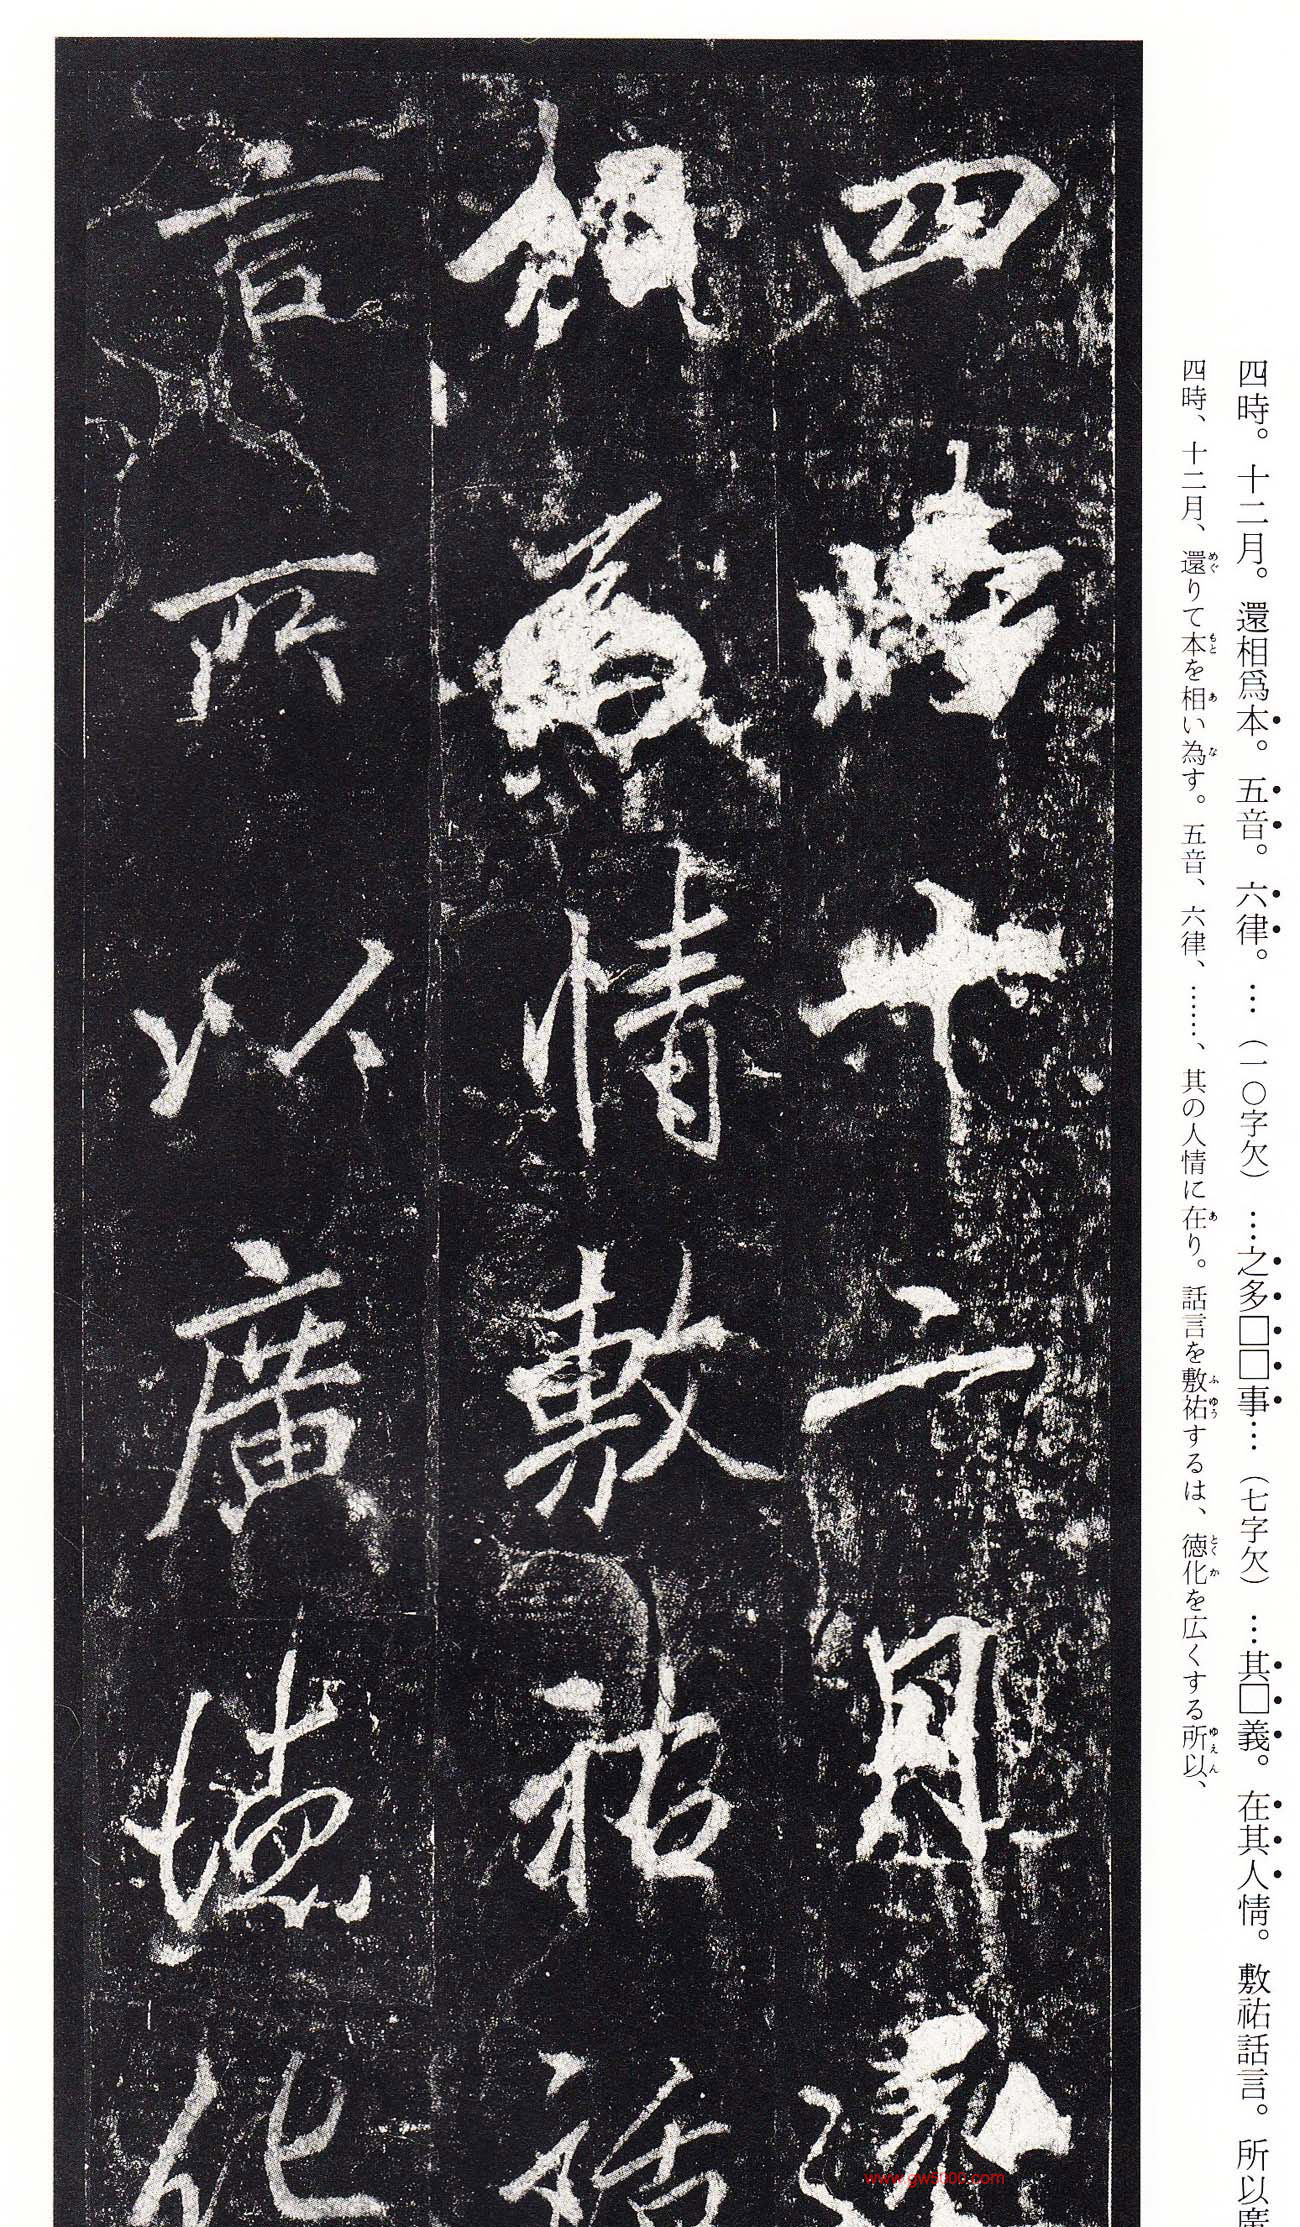 四時。十二月。還相爲本。五音。六律。…（一〇字欠）…之多□□事…（七字欠）…其□義。在其人情。敷祐話言。所以廣
四時、十二月、還りて本を相い為す。五音、六律、……、其の人情に在り。話言を敷祐するは、徳化を広くする所以、
めぐ もと あ な あ ふゆう とくか ゆえん
四時十二月還
相為情敷祐話
言所以廣德化
www.gw5000.com